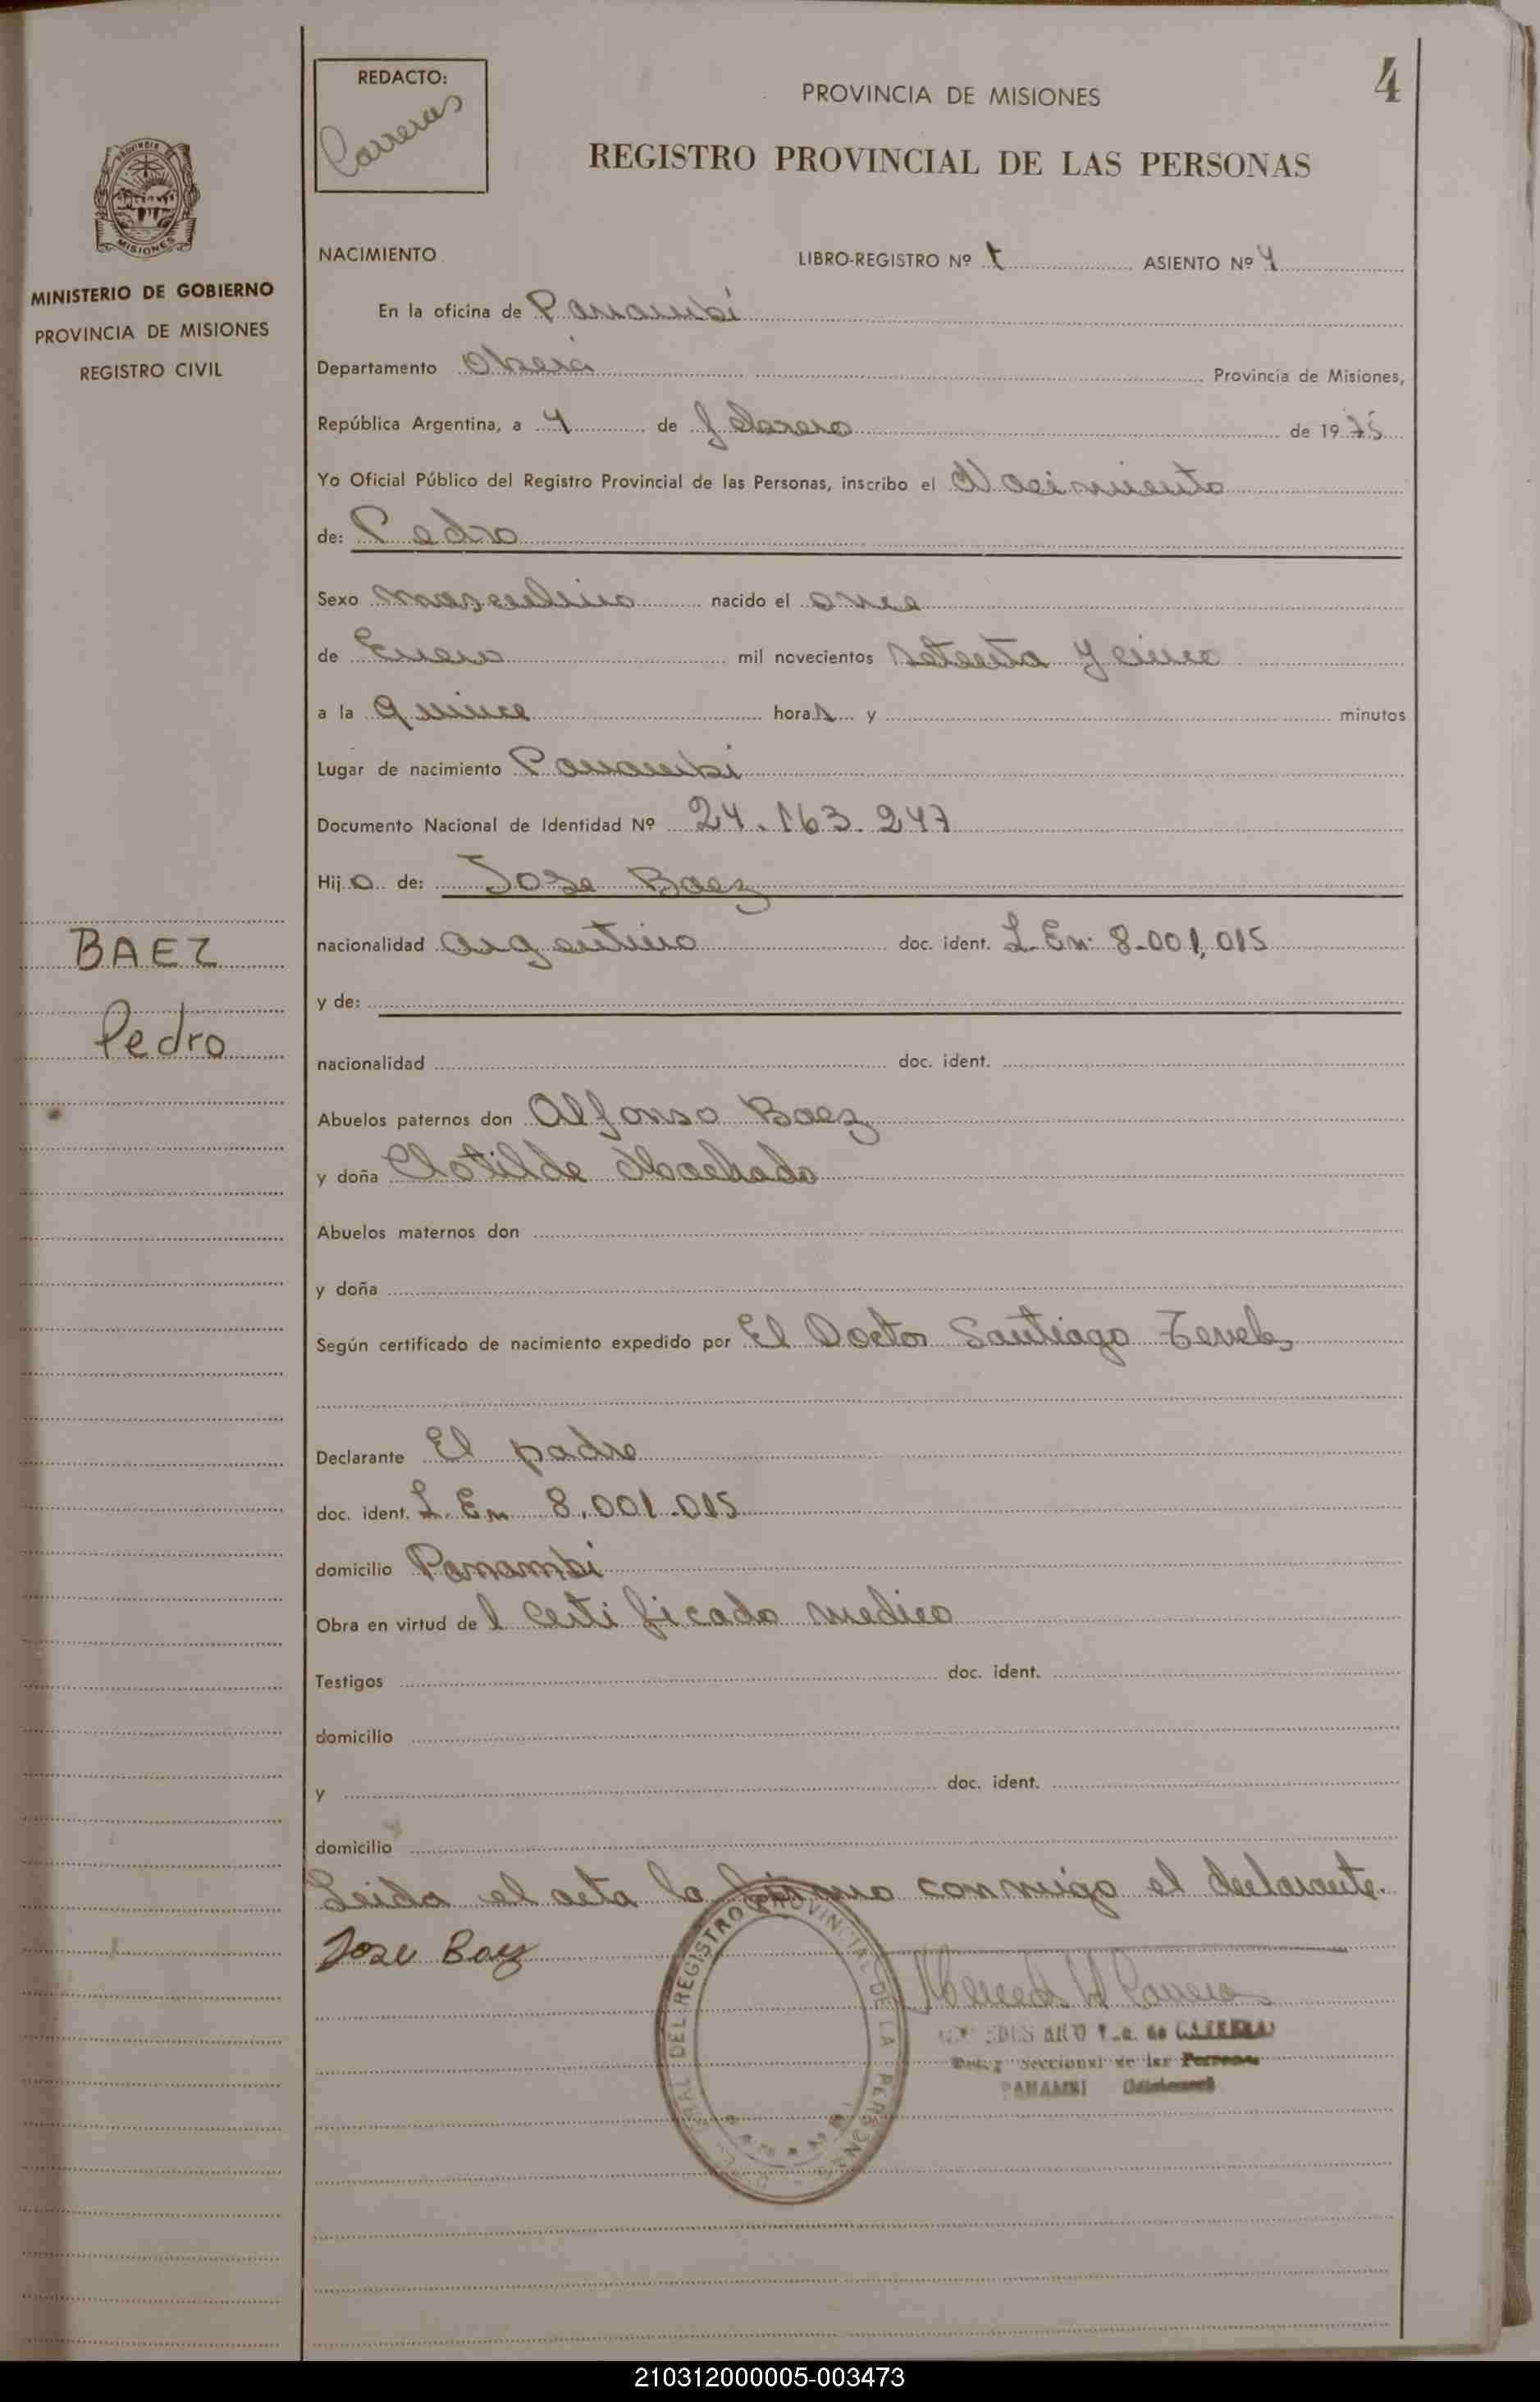 4
REDACTO:
Carreras
PROVINCIA DE MISIONES
REGISTRO PROVINCIAL DE LAS PERSONAS
PROVINCIA DE
MISIONES
MINISTERIO DE GOBIERNO
PROVINCIA DE MISIONES
REGISTRO CIVIL
BAEZ
Pedro
NACIMIENTO LIBRO-REGISTRO Nº ASIENTO Nº 4
En la oficina de Panambí
Departamento Oberá Provincia de Misiones,
República Argentina, a 4 de febrero de 1975
Yo Oficial Público del Registro Provincial de las Personas, inscribo el Nacimiento
de: Pedro
Sexo masculino nacido el once
de Enero mil novecientos setenta y cinco
a la quince horas y minutos
Lugar de nacimiento Panambi
Documento Nacional de Identidad Nº 24.163.247
Hijo de: Jose Baez
nacionalidad argentino doc. ident. L. En. 8.001,015
y de:
nacionalidad doc. ident.
Abuelos paternos don Alfonso Baez
y doña Clotilde Machado
Abuelos maternos don
y doña
Según certificado de nacimiento expedido por El Doctor Santiago
Declarante El padre
doc. ident. L. En 8.001.015
domicilio Panambi
Obra en virtud del certificado medico
Testigos doc. ident.
domicilio
y doc. ident.
domicilio
Leida el acta la firma conmigo el declarante.
Jose Baez
REGISTRO PROVINCIAL DE LA PERSONA
PANAMBI
210312000005-003473